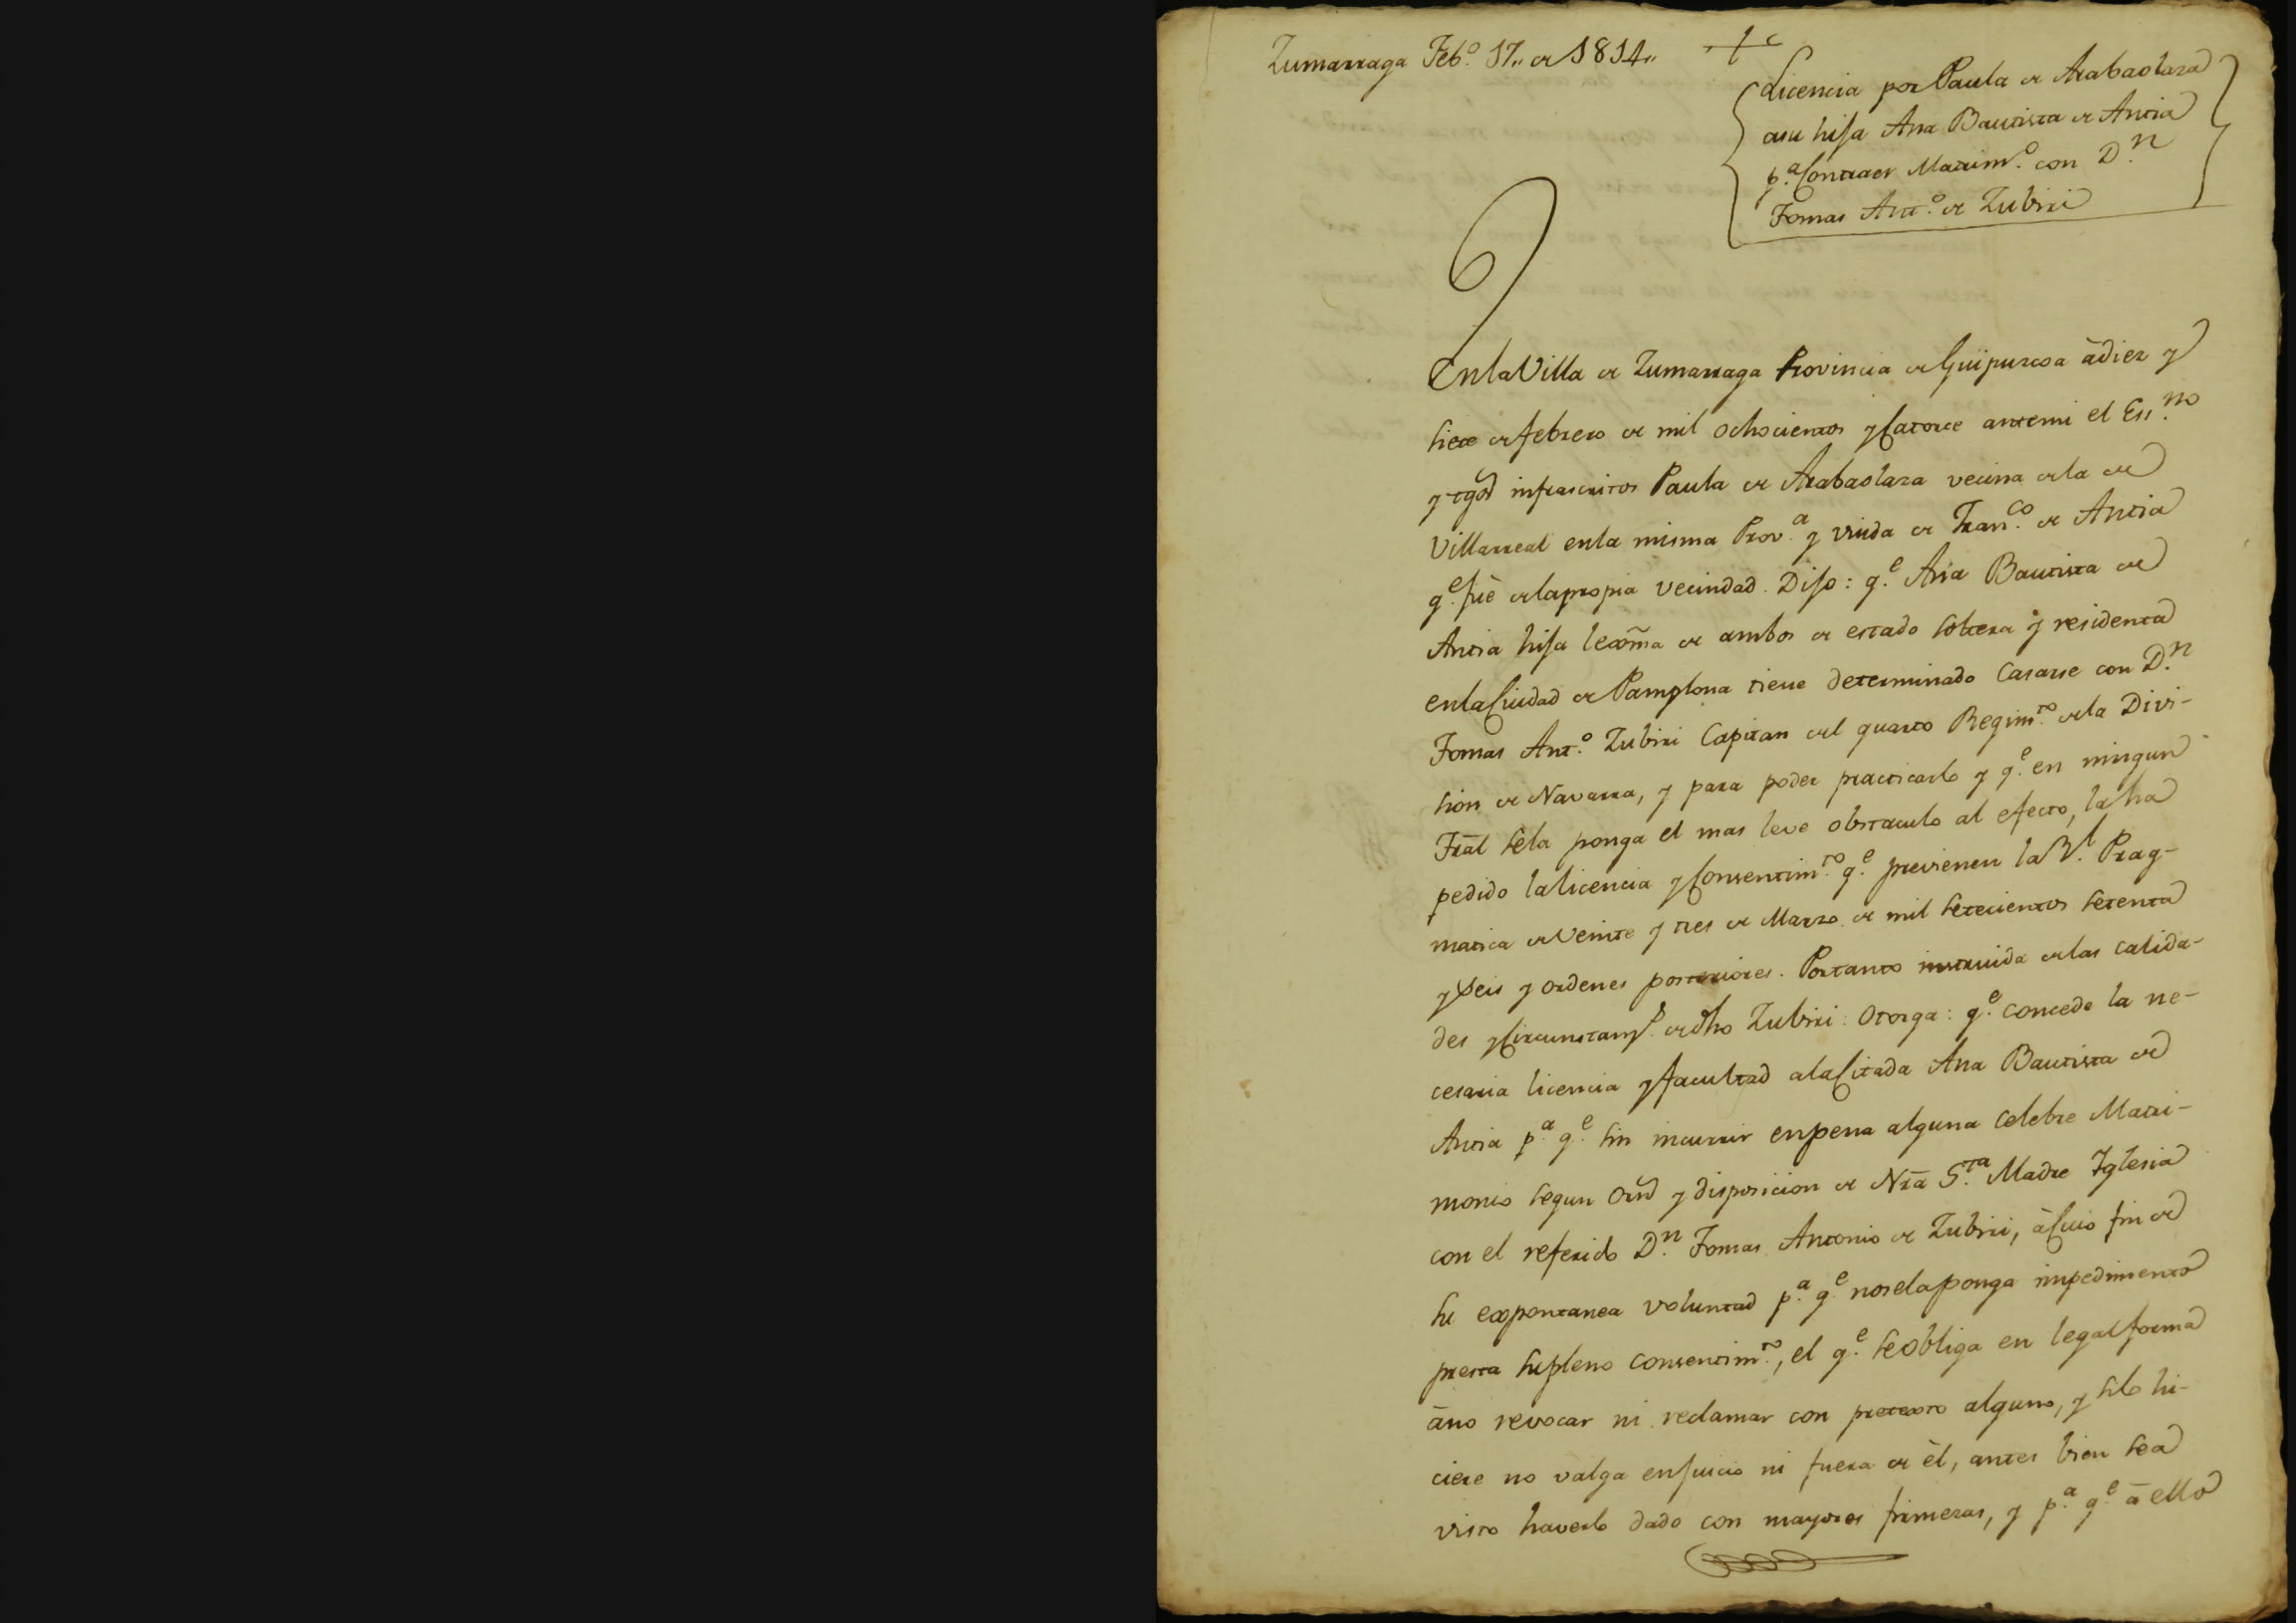 Zumarraga Feb.º 17,, de 1814,,
Licencia por Paula de Arabaolaza
asu hija Ana Bautista de Antia
p.ª Contraer Matrim.º con D.n
Tomas Ant.º de Zubiri
En la Villa de Zumarraga Provincia de Guipuzcoa à diez y
siete de febrero de mil ochocientos y Catorce antemi el Ess.no
y tgos infrascritos Paula de Arabaolaza vecina de la de
Villarreal en la misma Prov.ª y viuda de Fran.co de Antia
q.e fuè de la propia vecindad. Dijo: q.e Ana Bautista de
Antia hija lexma de ambos de estado soltera y residenta
en la Ciudad de Pamplona tiene determinado Casarse con D.n
Tomas Ant.º Zubiri Capitan del quarto Regim.to de la Divi-
sion de Navarra, y para poder practicarlo y q.e en ningun
Tral sela ponga el mas leve obstaculo al efecto, la ha
pedido la licencia y Consentim.to q.e previenen la R.l Prag-
matica de Veinte y tres de Marzo de mil setecientos setenta
y Seis y ordenes posteriores. Portanto instruida de las calida-
des y Circunstan.s de dho Zubiri: Otorga: q.e concede la ne-
cesaria licencia y facultad ala Citada Ana Bautista de
Antia p.ª q.e sin incurrir en pena alguna celebre Matri-
monio segun Orn y disposicion de Nra S.ta Madre Iglesia
con el referido D.n Tomas Antonio de Zubiri, à Cuio fin de
su expontanea voluntad p.ª q.e noselaponga impedimento
presta supleno consentim.to, el q.e se obliga en legal forma
àno revocar ni reclamar con pretexto alguno, y silo hi-
ciere no valga enjuicio ni fuera de èl, antes bien sea
visto haverlo dado con mayores firmezas, y p.ª q.e à ello